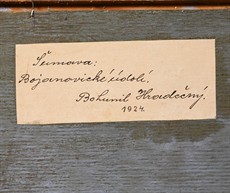 Šumava:
Bojanovické údolí.
Bohumil Hradečný.
1924.